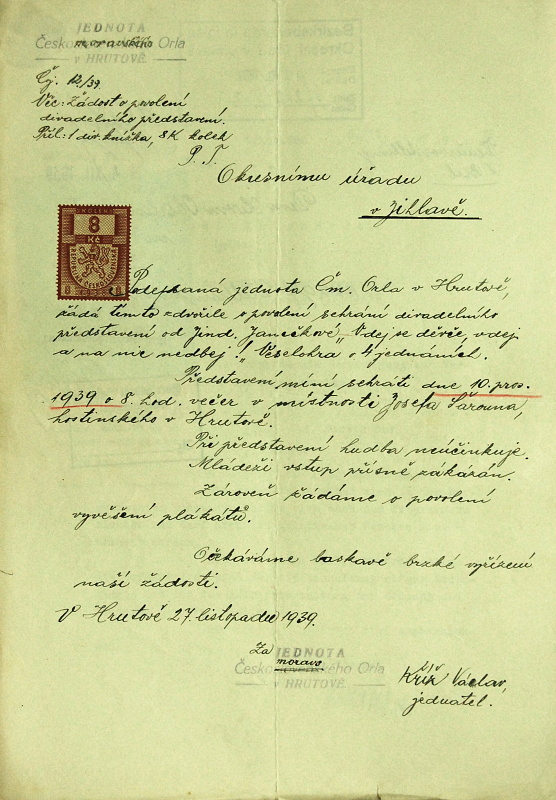 JEDNOTA
Česko moravského Orla
v HRUTOVĚ.
Čj. 12/39.
Věc: Žádost o povolení
divadelního představení.
Příl: 1 div. knížka, 8 K kolek
P. T.
Okresnímu úřadu
v Jihlavě.
KOLEK
8
Kč
Podepsaná jednota Čm. Orla v Hrutově,
žádá tímto zdvořile o povolení sehrání divadelního
představení od Jind. Janečkové „Vdej se děvče, vdej
a na nic nedbej!" Veselohra o 4 jednáních.
Představení míní sehráti dne 10. pros.
1939 o 8. hod. večer v místnosti Josefa Šárouna,
hostinského v Hrutově.
Při představení hudba neúčinkuje.
Mládeži vstup přísně zakázán.
Zároveň žádáme o povolení
vyvěšení plakátů.
Očekáváme laskavě brzké vyřízení
naší žádosti.
V Hrutově 27. listopadu 1939.
Za JEDNOTA
morav.
Česko ského Orla
v HRUTOVĚ.
Kříž Václav,
jednatel.